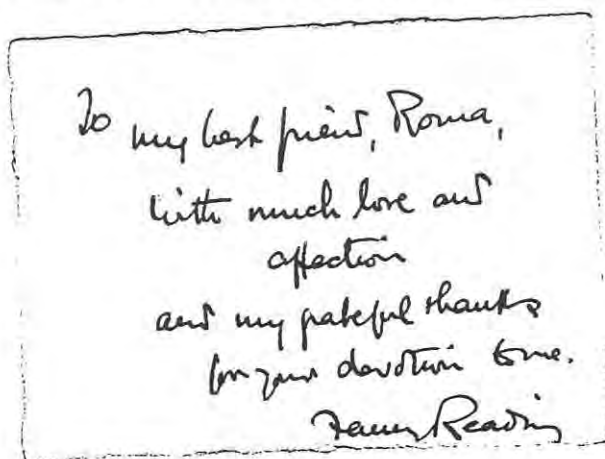 To my best friend, Roma,
with much love and
affection
and my grateful thanks
for your devotion to me.
Fanny Reading